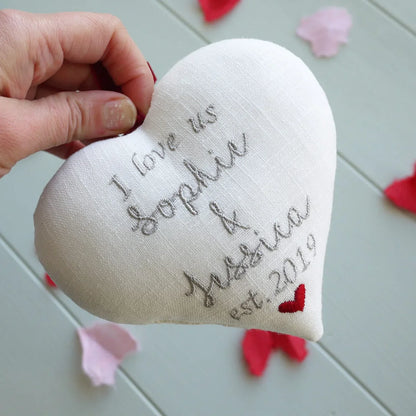 I love us
Sophie
&
Jessica
est. 2019